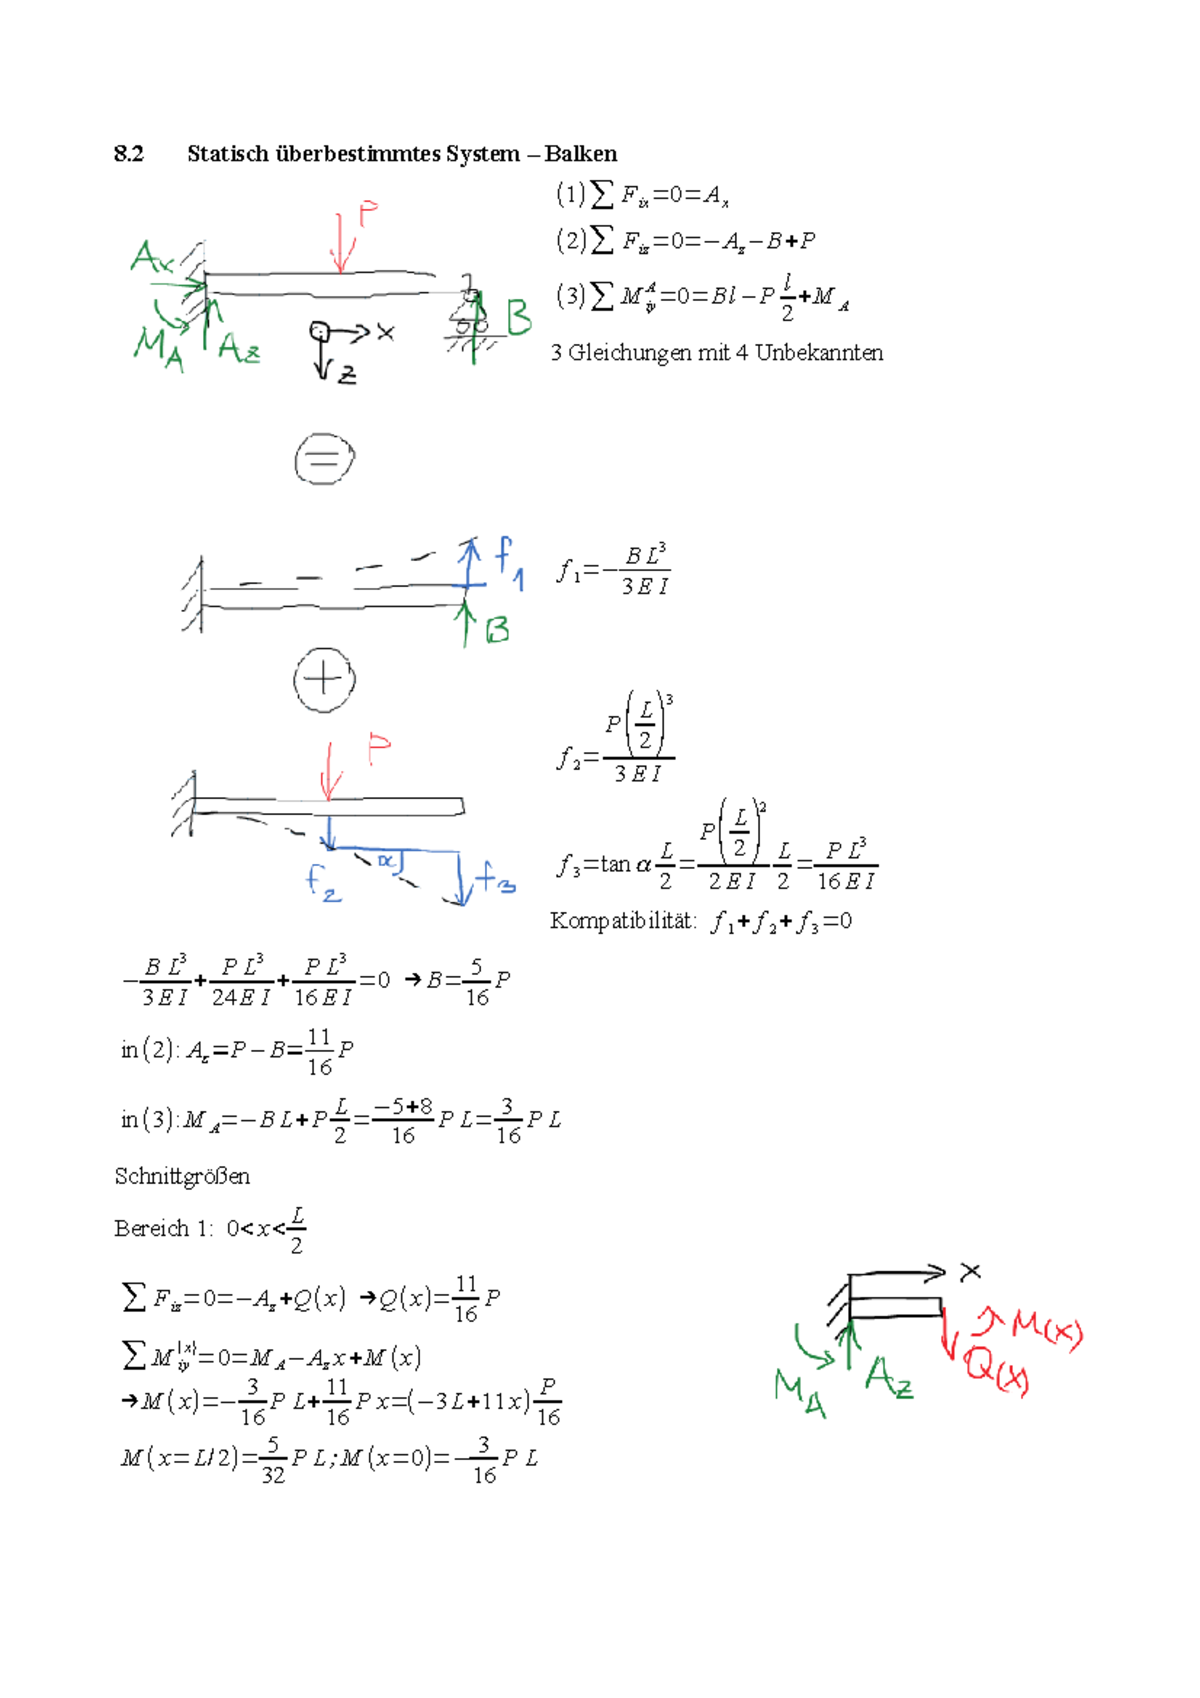 8.2 Statisch überbestimmtes System – Balken
(1) ∑ F_ix=0=A_x
(2) ∑ F_iz=0=−A_z−B+P
(3) ∑ M_iy^A=0=Bl−P l/2+M_A
3 Gleichungen mit 4 Unbekannten
P
A_x
M_A
A_z
B
x
z
=
f_1
B
f_1=−B L^3/(3 E I)
+
P
f_2
α
f_3
f_2=P(L/2)^3/(3 E I)
f_3=tan α L/2=P(L/2)^2/(2 E I) L/2=P L^3/(16 E I)
Kompatibilität: f_1+f_2+f_3=0
−B L^3/(3 E I)+P L^3/(24 E I)+P L^3/(16 E I)=0 → B=5/16 P
in (2): A_z=P−B=11/16 P
in (3): M_A=−B L+P L/2=(−5+8)/16 P L=3/16 P L
Schnittgrößen
Bereich 1: 0<x<L/2
∑ F_iz=0=−A_z+Q(x) →Q(x)=11/16 P
∑ M_iy^|x|=0=M_A−A_z x+M(x)
→M(x)=−3/16 P L+11/16 P x=(−3L+11x) P/16
M(x=L/2)=5/32 P L; M(x=0)=−3/16 P L
x
M(x)
Q(x)
A_z
M_A